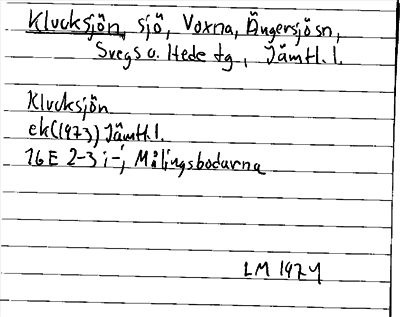 Klucksjön, sjö, Voxna, Ängersjö sn,
Svegs o. Hede tg, Jämtl. l.
Klucksjön
ek (1973) Jämtl.
16E 2-3 i-j, Målingsbodarna
LM 1974